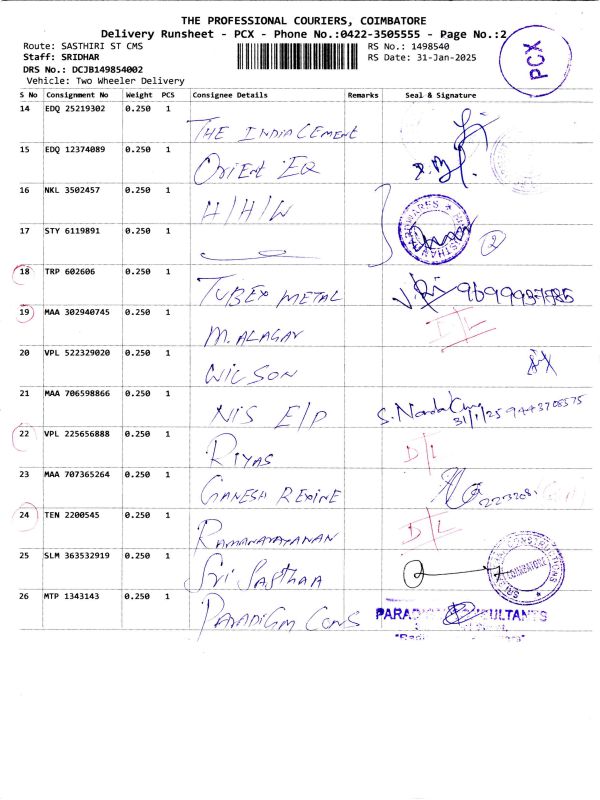 THE PROFESSIONAL COURIERS, COIMBATORE
Delivery Runsheet - PCX - Phone No.:0422-3505555 - Page No.:2
Route: SASTHIRI ST CMS
RS No.: 1498540
Staff: SRIDHAR
RS Date: 31-Jan-2025
DRS No.: DCJB149854002
Vehicle: Two Wheeler Delivery
PCX
S No Consignment No Weight PCS Consignee Details Remarks Seal & Signature
14 EDQ 25219302 0.250 1
THE INDIA CEMENT
15 EDQ 12374089 0.250 1
Orient EQ
16 NKL 3502457 0.250 1
H/H/W
17 STY 6119891 0.250 1
2
18 TRP 602606 0.250 1
TUBEX METAL
19 MAA 302940745 0.250 1
M. ALAGAR
D/L
20 VPL 522329020 0.250 1
WILSON
21 MAA 706598866 0.250 1
NIS E/P
31/1/25 9443708575
22 VPL 225656888 0.250 1
RIYAS
D/L
23 MAA 707365264 0.250 1
GANESH REXINE
24 TEN 2200545 0.250 1
RAMANARAYANAN
D/L
25 SLM 363532919 0.250 1
Sri Sasthaa
COIMBATORE
26 MTP 1343143 0.250 1
PARADIGM CONS